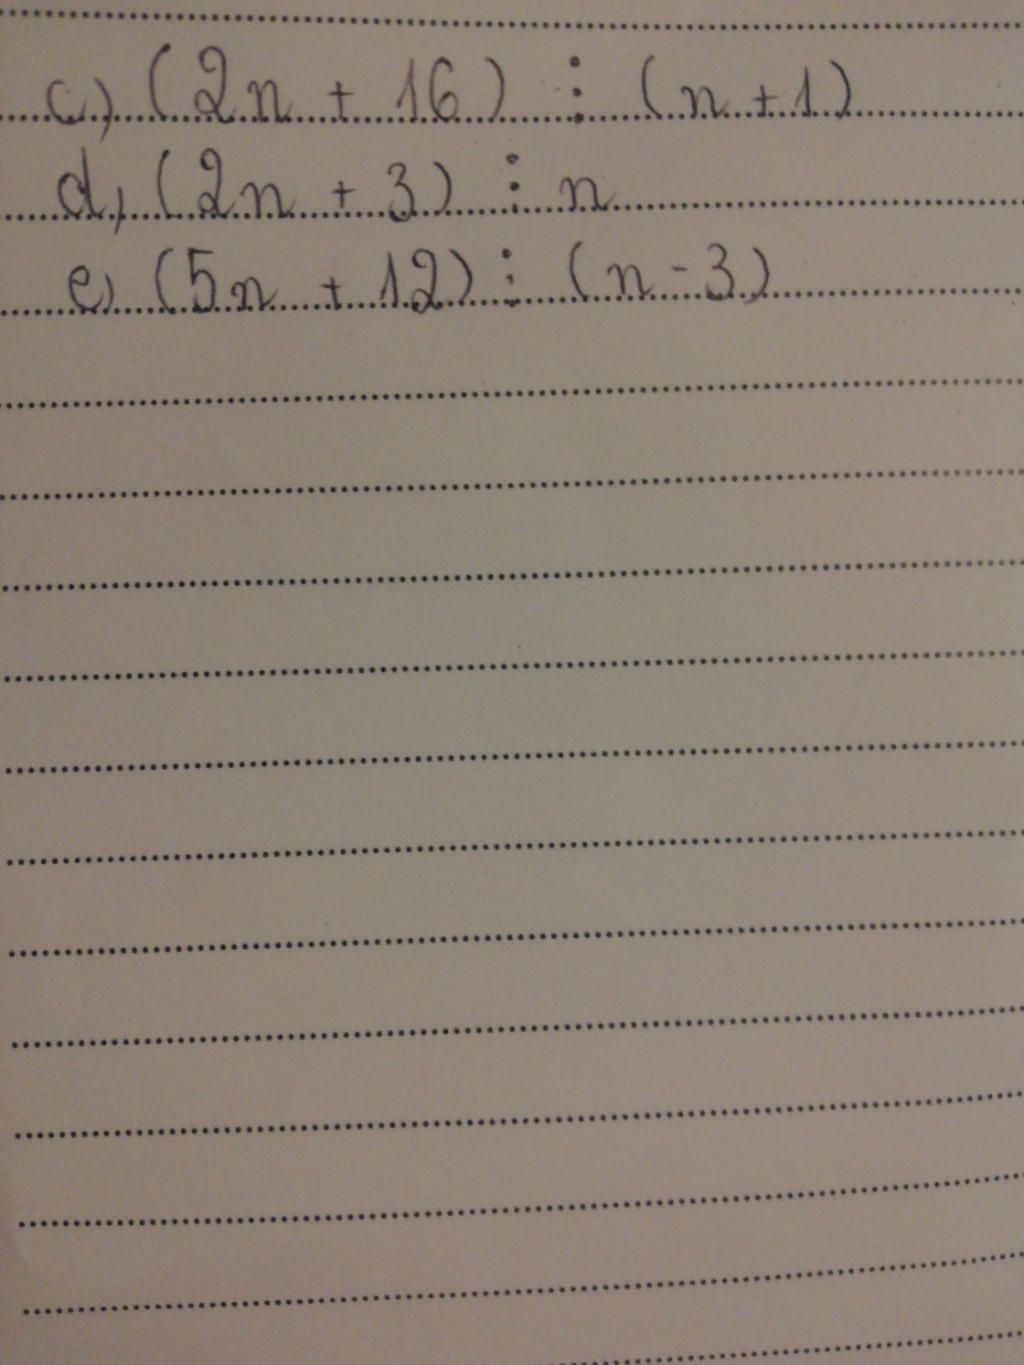 c) (2n + 16) ⋮ (n + 1)
d) (2n + 3) ⋮ n
e) (5n + 12) ⋮ (n - 3)